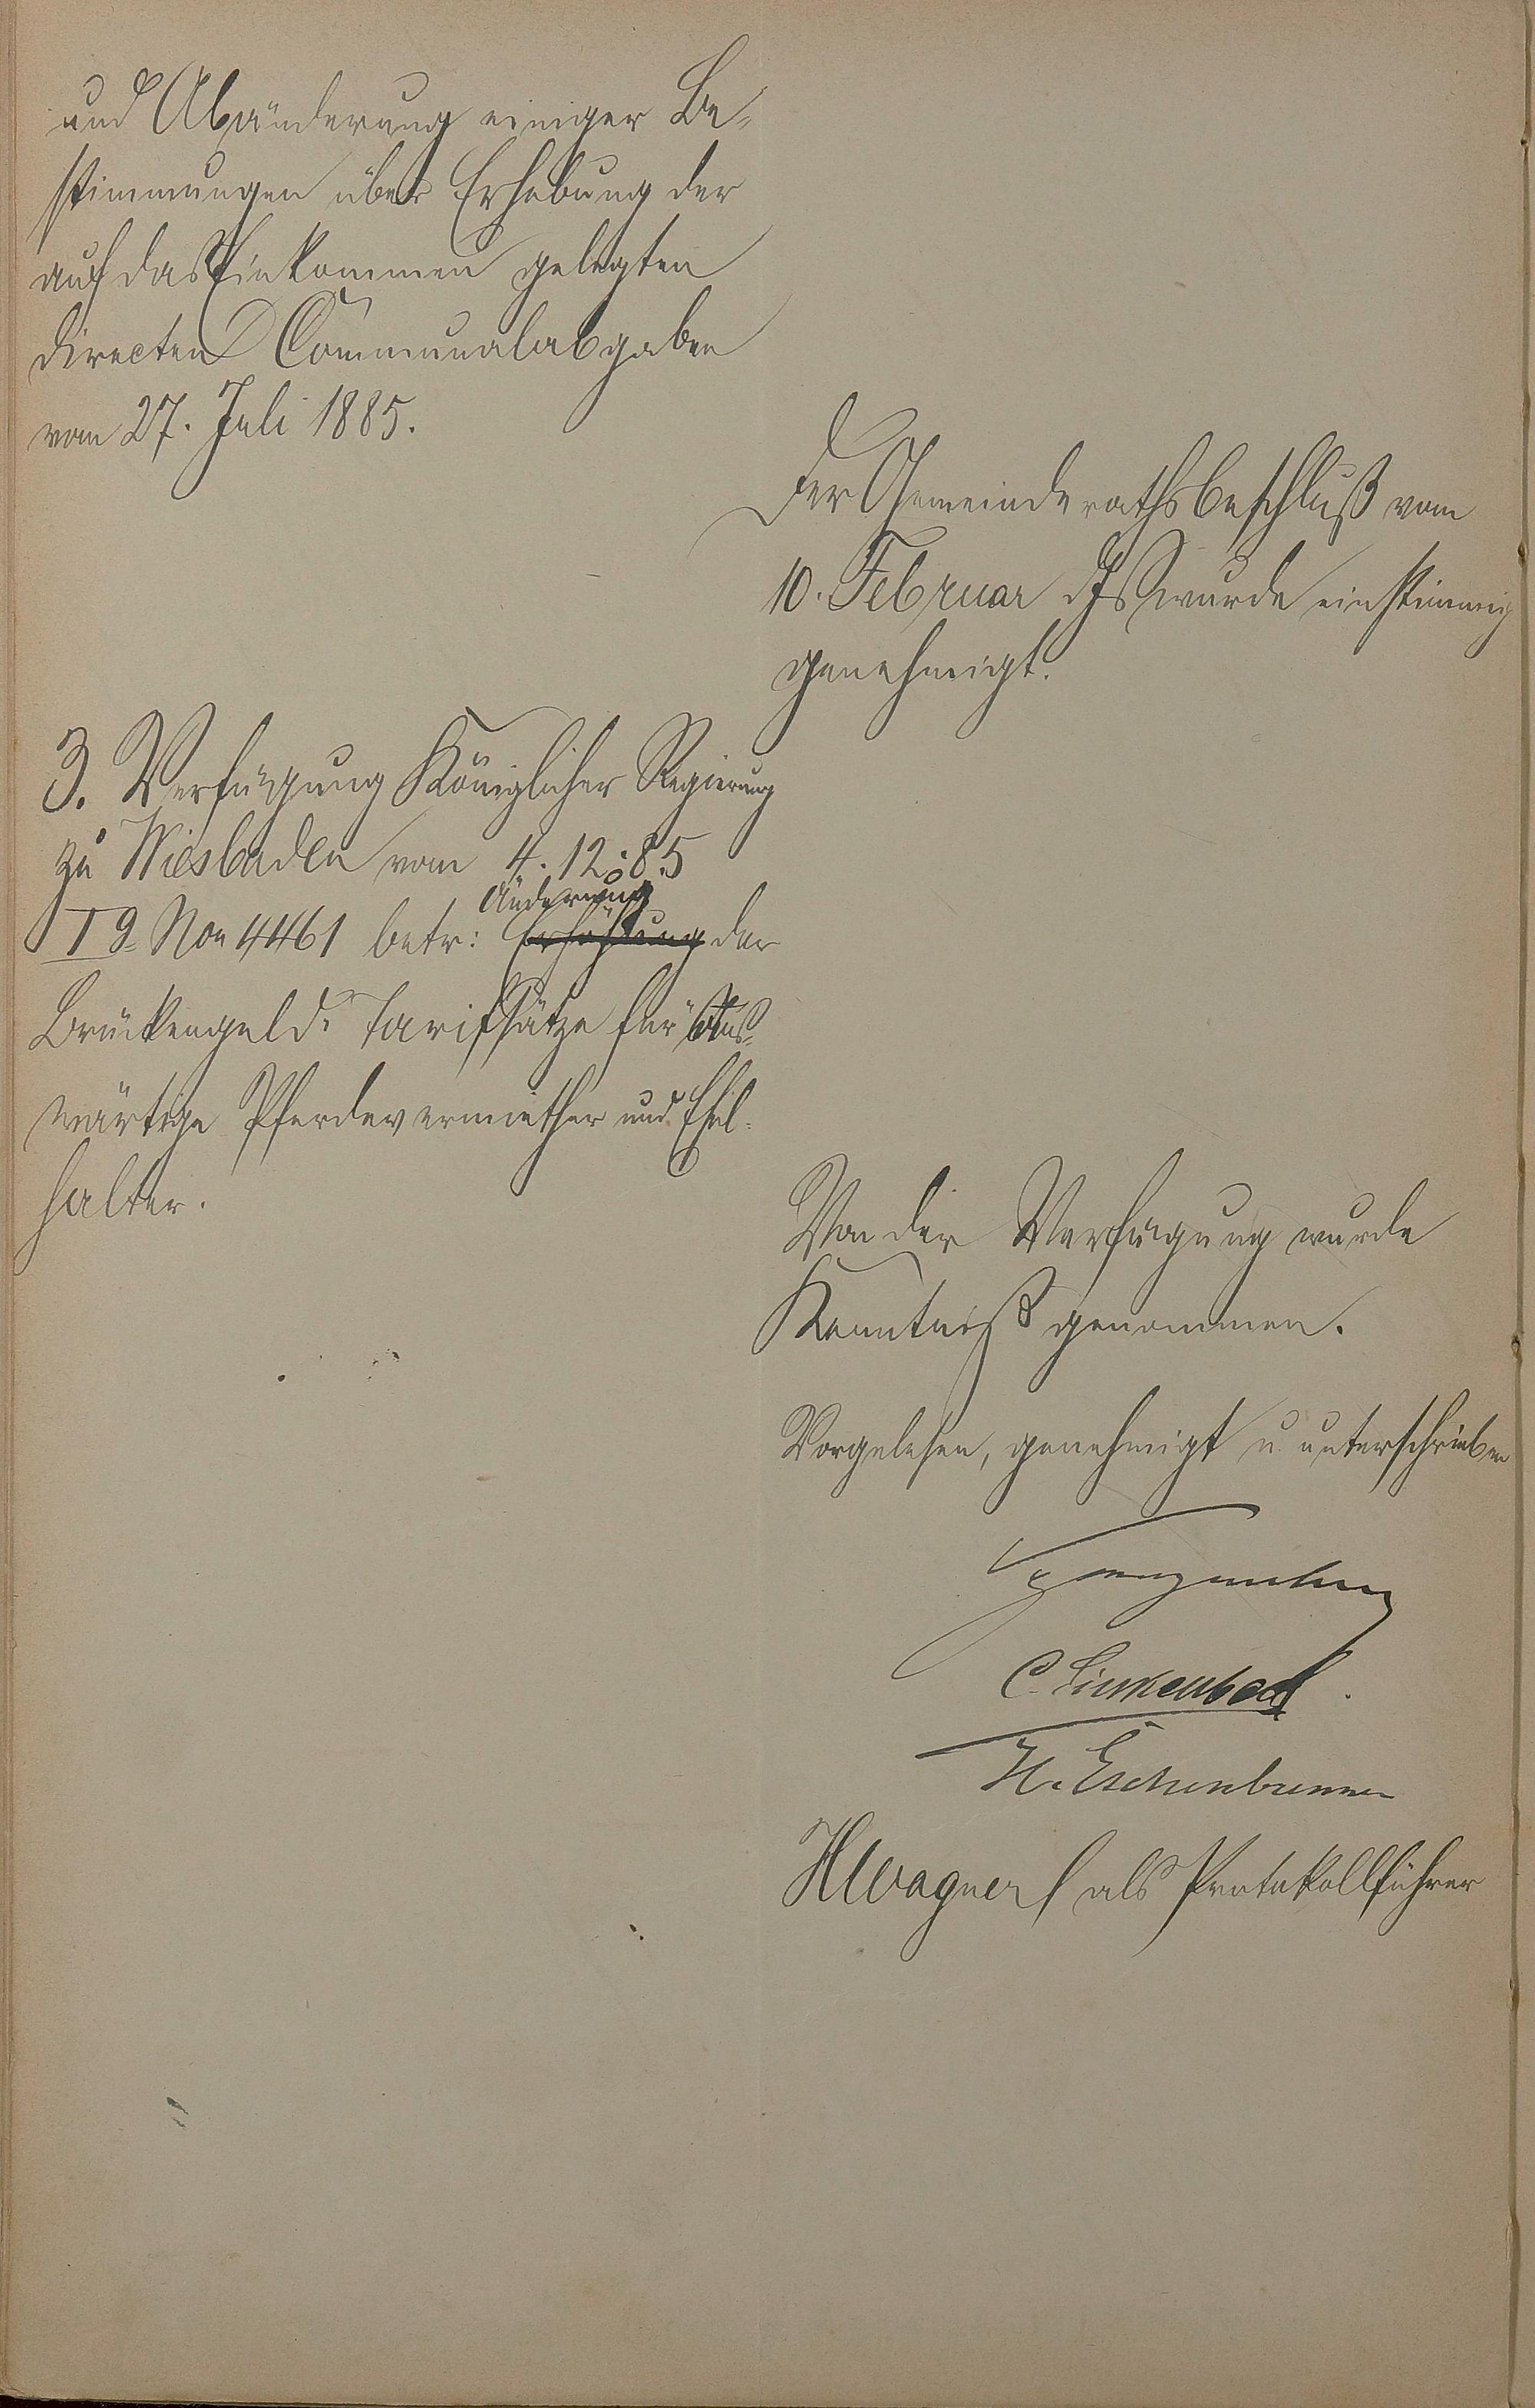 und Abänderung einiger Be-
stimmungen über Erhebung der
auf das Einkommen gelegten
directen Communalabgaben
vom 27. Juli 1885.
Der Gemeinderathsbeschluß vom
10. Februar d Js wurde einstimmig
genehmigt.
3. Verfügung Königlicher Regierung
zu Wiesbaden vom 4. 12. 85
Änderung
I 9 Non 4461 betr: Erhöhung der
Brückengeld-Tarifsätze für Aus-
wärtige Pferdevermiether und Esel-
halter.
Von der Verfügung wurde
Kenntniß genommen.
Vorgelesen, genehmigt u unterschrieben
C. Linkenbach.
H. Eschenbrenner
HWagner als Protokollführer